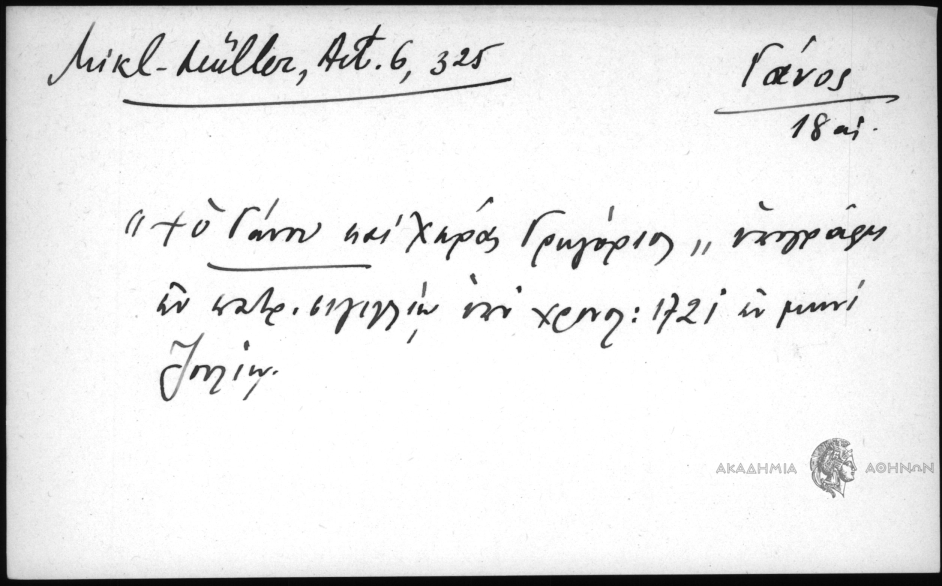 Mikl-Müller, Act. 6, 325
Γάνος
18 αἰ.
"+ ὁ Γάνου καὶ Χώρας Γρηγόριος,, ὑπογράφει
ἐν πατρ. σιγιλλίῳ ὑπὸ χρονολ: 1721 ἐν μηνὶ
Ἰουλίῳ.
ΑΚΑΔΗΜΙΑ ΑΘΗΝΩΝ